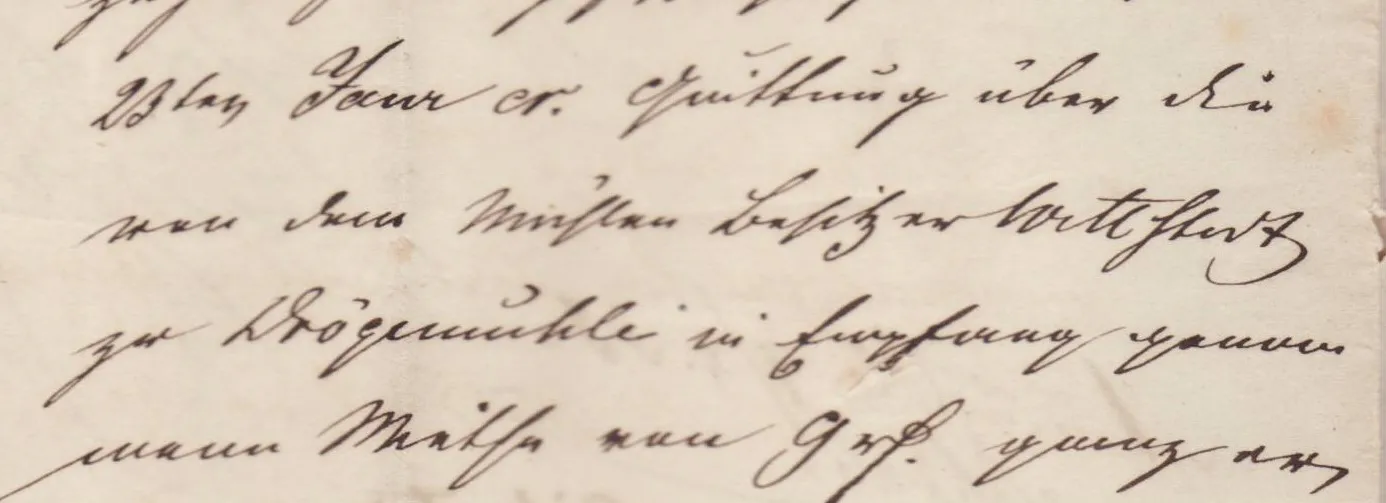 23ten Janr cr. Quittung über die
von dem Mühlen Besitzer
zu Drögemühle in Empfang genom
mene Miethe von ganz er